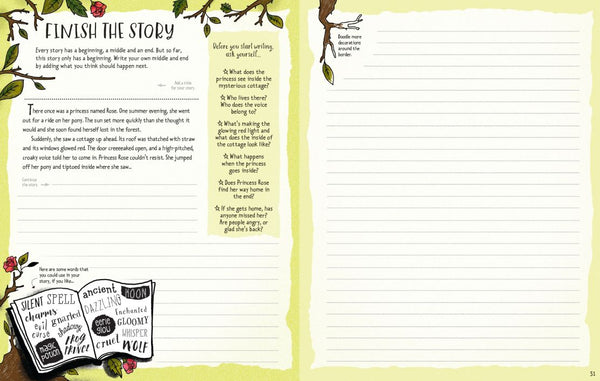 FINISH THE STORY
Every story has a beginning, a middle and an end. But so far,
this story only has a beginning. Write your own middle and end
by adding what you think should happen next.
Add a title
for your story.
There once was a princess named Rose. One summer evening, she went
out for a ride on her pony. The sun set more quickly than she thought it
would and she soon found herself lost in the forest.
Suddenly, she saw a cottage up ahead. Its roof was thatched with straw
and its windows glowed red. The door creeeeaked open, and a high-pitched,
croaky voice told her to come in. Princess Rose couldn't resist. She jumped
off her pony and tiptoed inside where she saw...
Continue
the story.
Before you start writing,
ask yourself...
What does the
princess see inside the
mysterious cottage?
Who lives there?
Who does the voice
belong to?
What's making the
glowing red light and
what does the inside of
the cottage look like?
What happens
when the princess
goes inside?
Does Princess Rose
find her way home in
the end?
If she gets home, has
anyone missed her?
Are people angry, or
glad she's back?
Here are some words that
you could use in your
story, if you like...
SILENT SPELL
charms
evil gnarled
curse shadowy
magic
potion
frog
prince
ancient
MOON
DAZZLING
eerie
glow
Enchanted
GLOOMY
WHISPER
cruel WOLF
Doodle more
decorations
around the
border.
51